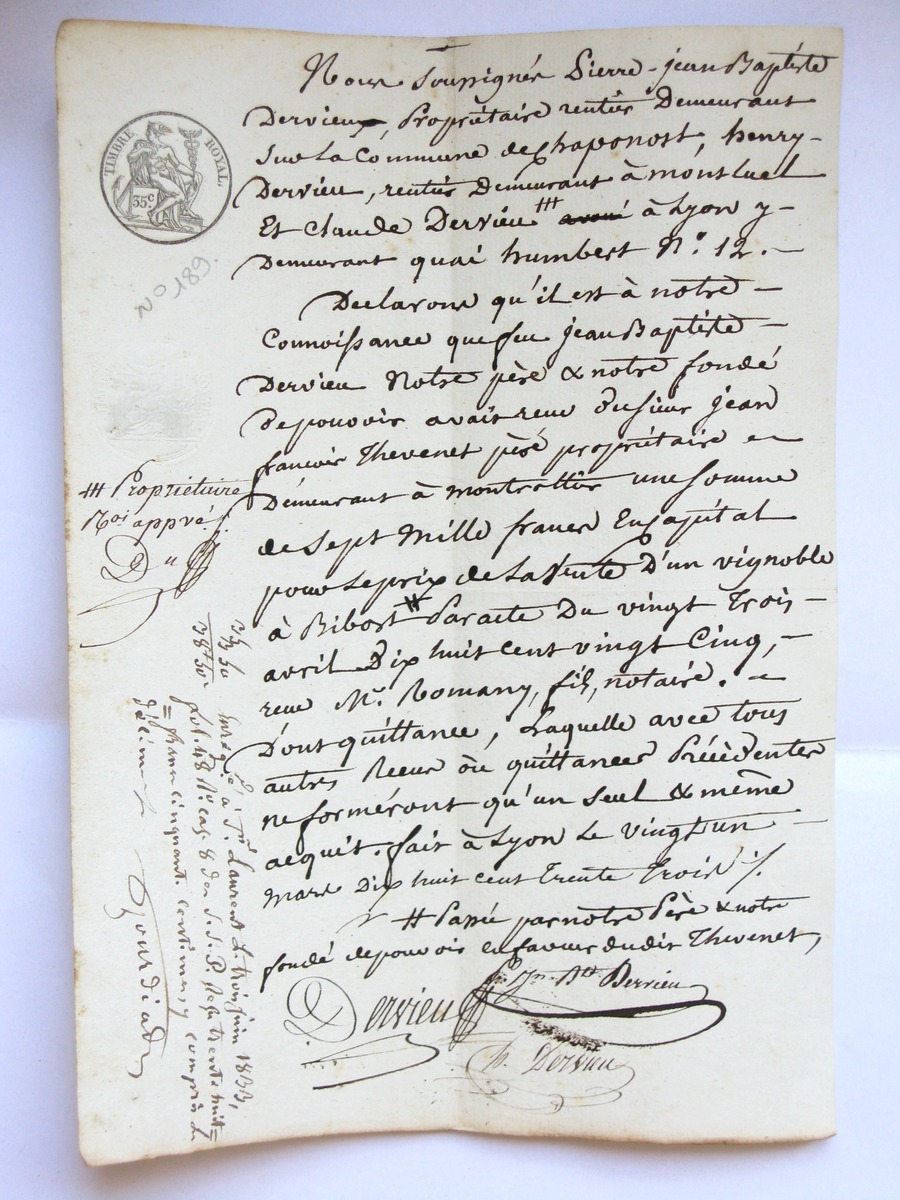 TIMBRE ROYAL
35.c
No 189.
Nous Soussignés Pierre-jean Baptiste
Dervieux, Propriétaire rentier Demeurant
Sur La Commune de chaponost, henry-
Dervieu, rentier Demeurant à montluel
Et Claude Dervieu ### avoué à Lyon y-
Demeurant quai humbert N.o 12. -
Declarons qu'il est à notre -
Connoissance que feu jean Baptiste -
Dervieu Notre père & notre fondé
de pouvoir avait reçu du sieur jean
francois Thevenet père propriétaire en
Demeurant à montrottier une somme
de Sept Mille francs En capital
pour Le prix de La Vente D'un vignoble
à Bibost # Par acte Du vingt Trois -
avril Dix huit cent vingt Cinq, -
reçu Me. Romany, fils, notaire. -
Dont quittance, Laquelle avec tous
autres Recus ou quittances Précédentes
ne formeront qu'un seul & même
acquit. fait à Lyon Le vingt un -
mars Dix huit cent Trente Trois ./.
# Passé par notre Père & notre
fondé de pouvoir en faveur du dit Thevenet,
P. Jn. Bte Dervieu
Dervieu
h. Dervieu
### Propriétaire
Moi appvé ./.
Du
Enreg.é à St Laurent L. trois juin 1833,
fol. 48 Ro cas. 8 des S.S.P. Reçu trente huit =
= francs cinquant. centimes, y compris L
décime
Gourdiad